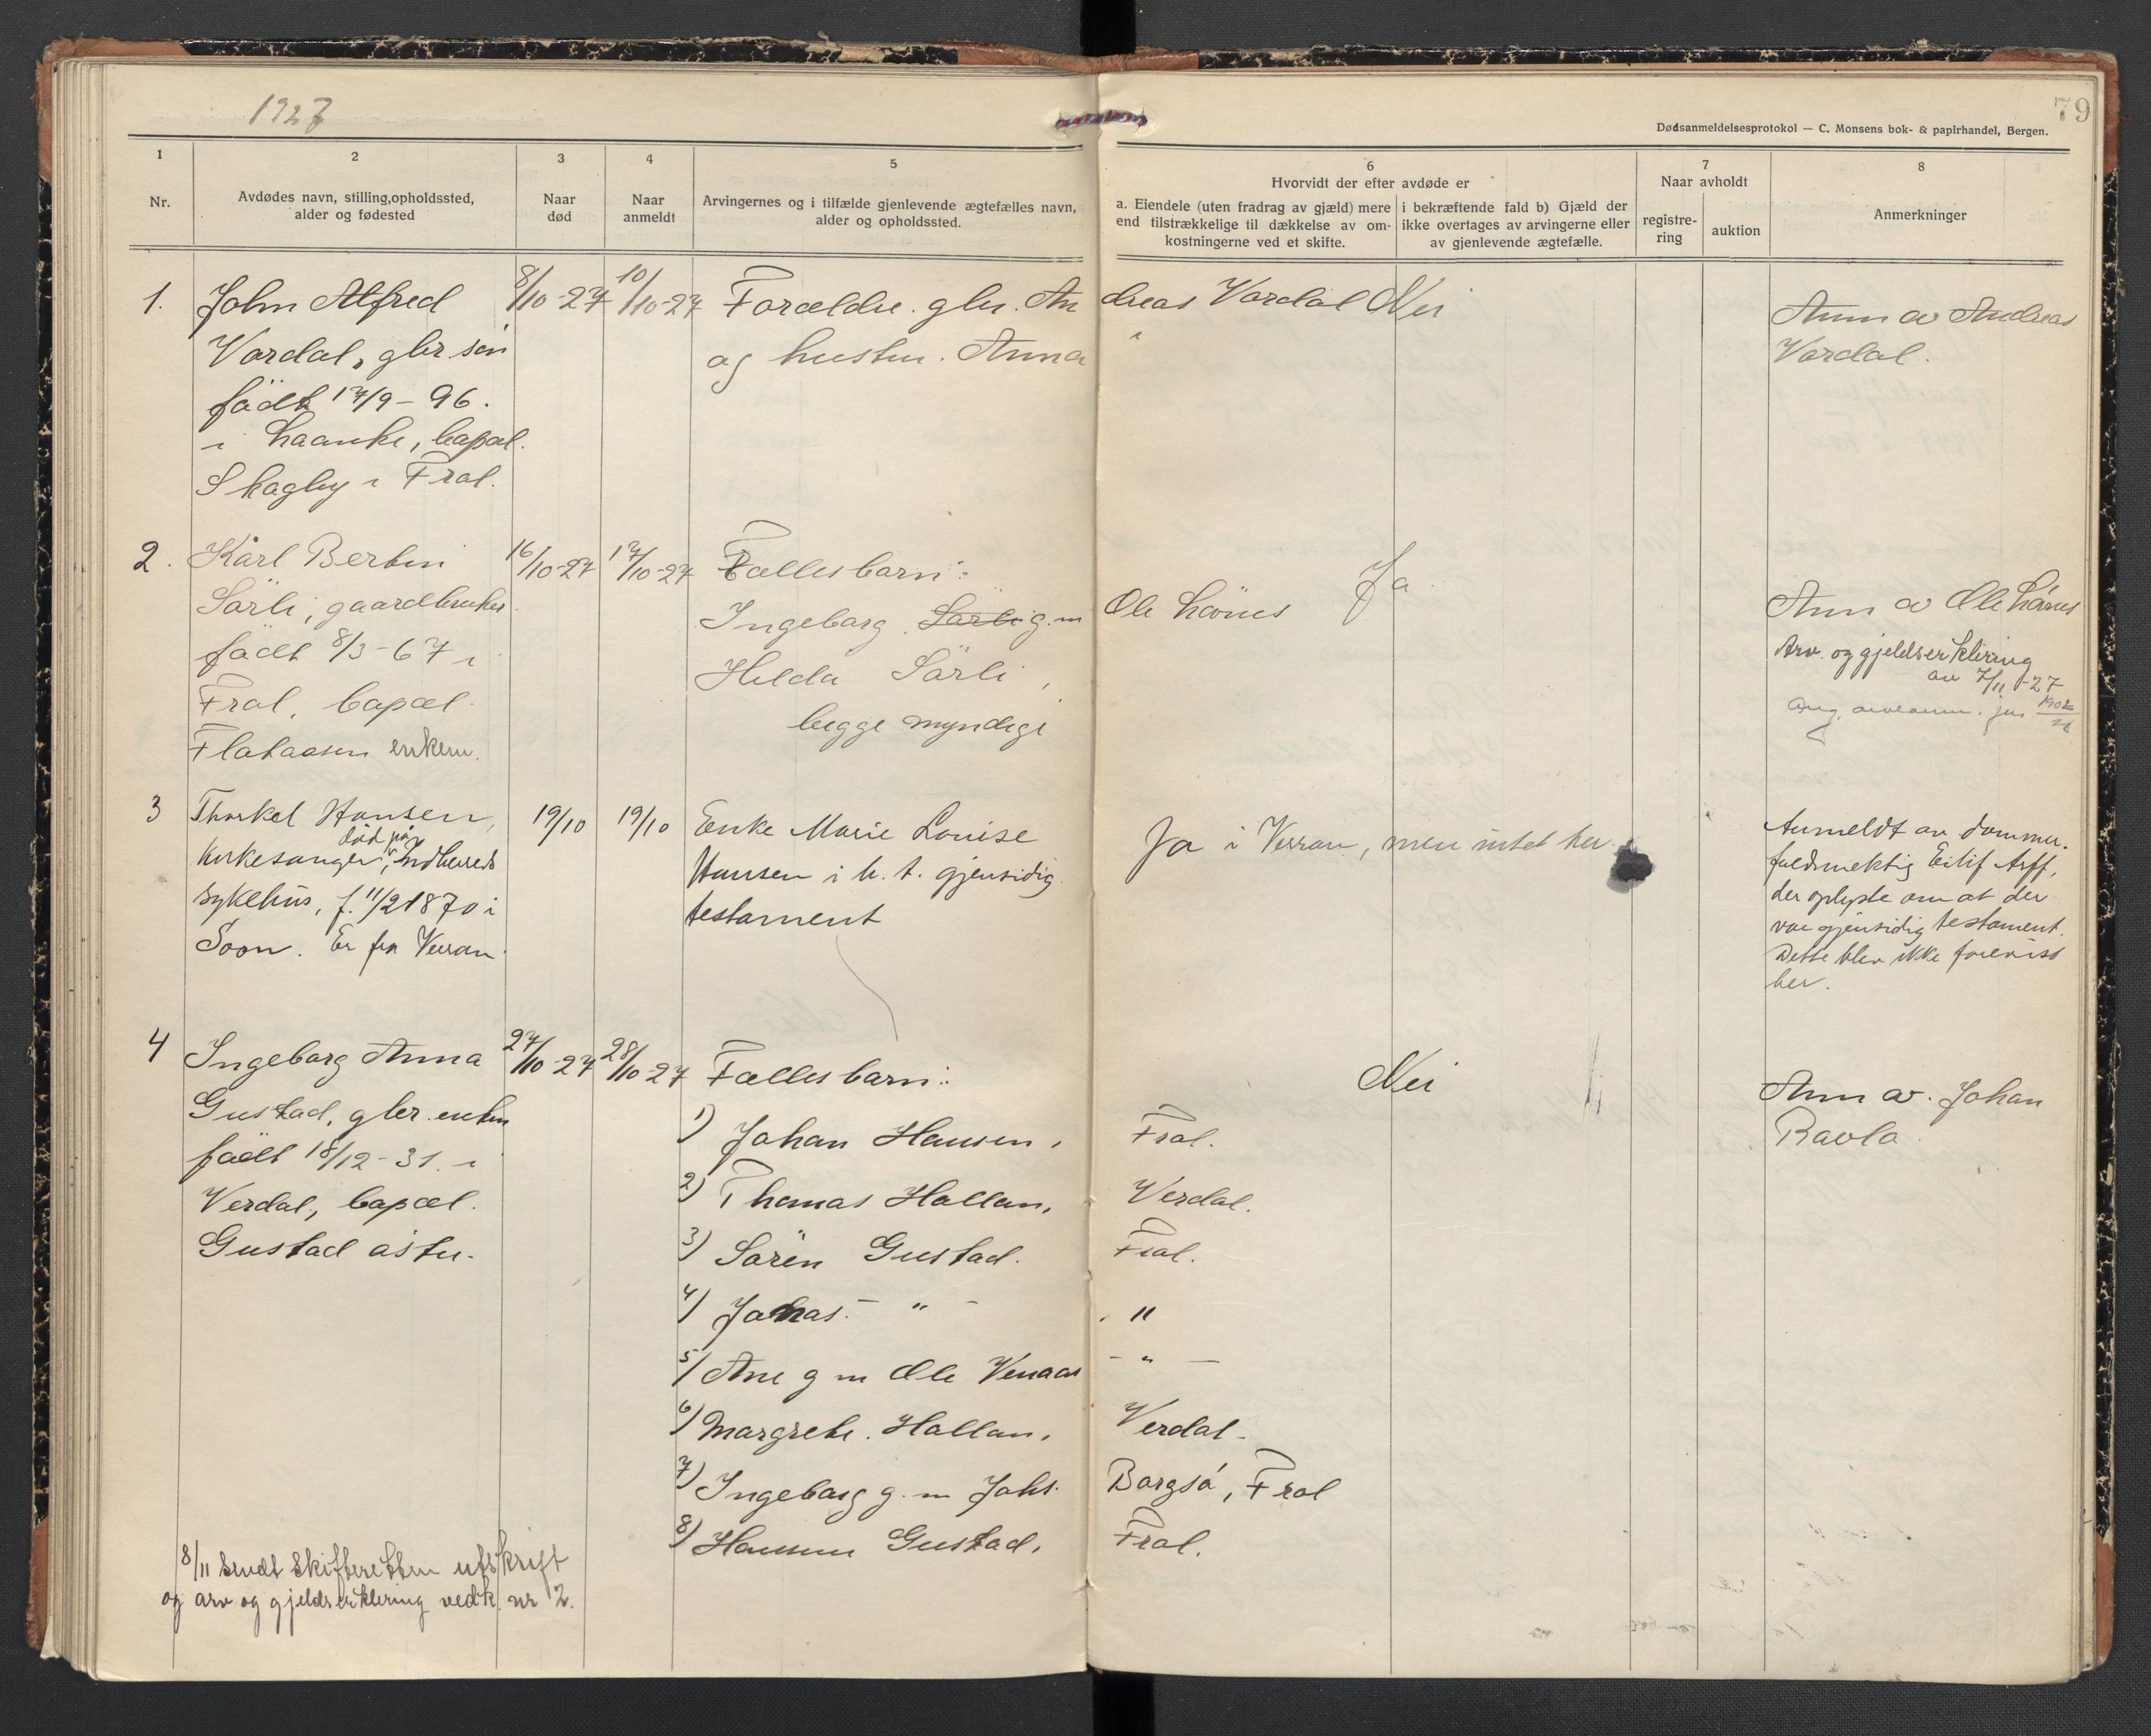 1927
79
Dødsanmeldelsesprotokol — C. Monsens bok- & papirhandel, Bergen.
1
Nr.
2
Avdødes navn, stilling, opholdssted,
alder og fødested
3
Naar
død
4
Naar
anmeldt
5
Arvingernes og i tilfælde gjenlevende ægtefælles navn,
alder og opholdssted.
6
Hvorvidt der efter avdøde er
a. Eiendele (uten fradrag av gjæld) mere
end tilstrækkelige til dækkelse av om-
kostningerne ved et skifte.
i bekræftende fald b) Gjæld der
ikke overtages av arvingerne eller
av gjenlevende ægtefælle.
7
Naar avholdt
registre-
ring
auktion
8
Anmerkninger
1.
John Alfred
Vordal, gbr. sön
född 17/9 - 96.
i , bopæl.
Skogby i Frol.
8/10-27
10/10-27
Forældre. gbr. An dreas Vordal
og hustru. Anna
Nei
Anm av Andreas
Vordal.
2.
Karl Bertin
Sörli, gaardbruker.
födt 8/3-67 i
Frol, bopæl
enkem.
16/10-27
17/10-27
Fællesbarn:
Ingeborg Sörli g.m Ole
Helda Sörli,
begge myndige
Ja
Anm av Ole
Arv. og gjeldserklæring
av 7/11-27
3
Thorkel Hansen,
död på
kirkesanger, Indherreds
sykehus, f. 11/2 1870 i
Soon. Er fra Verran
19/10
19/10
Enke Marie Louise
Hansen i h. t. gjensidig
testament
Ja i Verran, men intet her.
Anmeldt av dommer-
fuldmektig Eilif Arff,
der oplyste om at der
var gjensidig testament.
Dette blev ikke forevist
her.
4
Ingeborg Anna
Gustad, gbr. enke
född 18/12-31. i
Verdal, bopæl.
Gustad östre.
27/10-27
28/10-27
Fællesbarn:
1) Johan Hansen, Frol.
2) Thomas Hallan, Verdal.
3) Sören Gustad. Frol.
4) Johas. - " - "
5) Ane g m Ole Venaas - " -
6) Margrete. Hallan, Verdal.
7) Ingeborg g. m Johs. Borgsö, Frol
8) Hansen Gustad, Frol.
Nei
Anm av. Johan
Ravlo
8/11 sendt Skifteretten utskrift
og arv og gjeldserklæring vedk. nr 2.